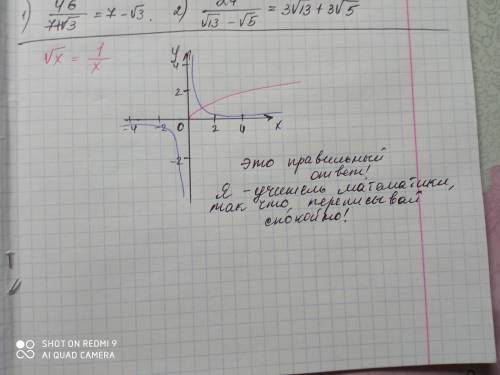 1) 46/(7+√3) = 7 - √3. 2) 24/(√13 - √5) = 3√13 + 3√5
√x = 1/x
y
4
2
-4 -2 0 2 4 x
-2
это правильный
ответ!
Я - учитель математики,
так что, переписывай
спокойно!
SHOT ON REDMI 9
AI QUAD CAMERA